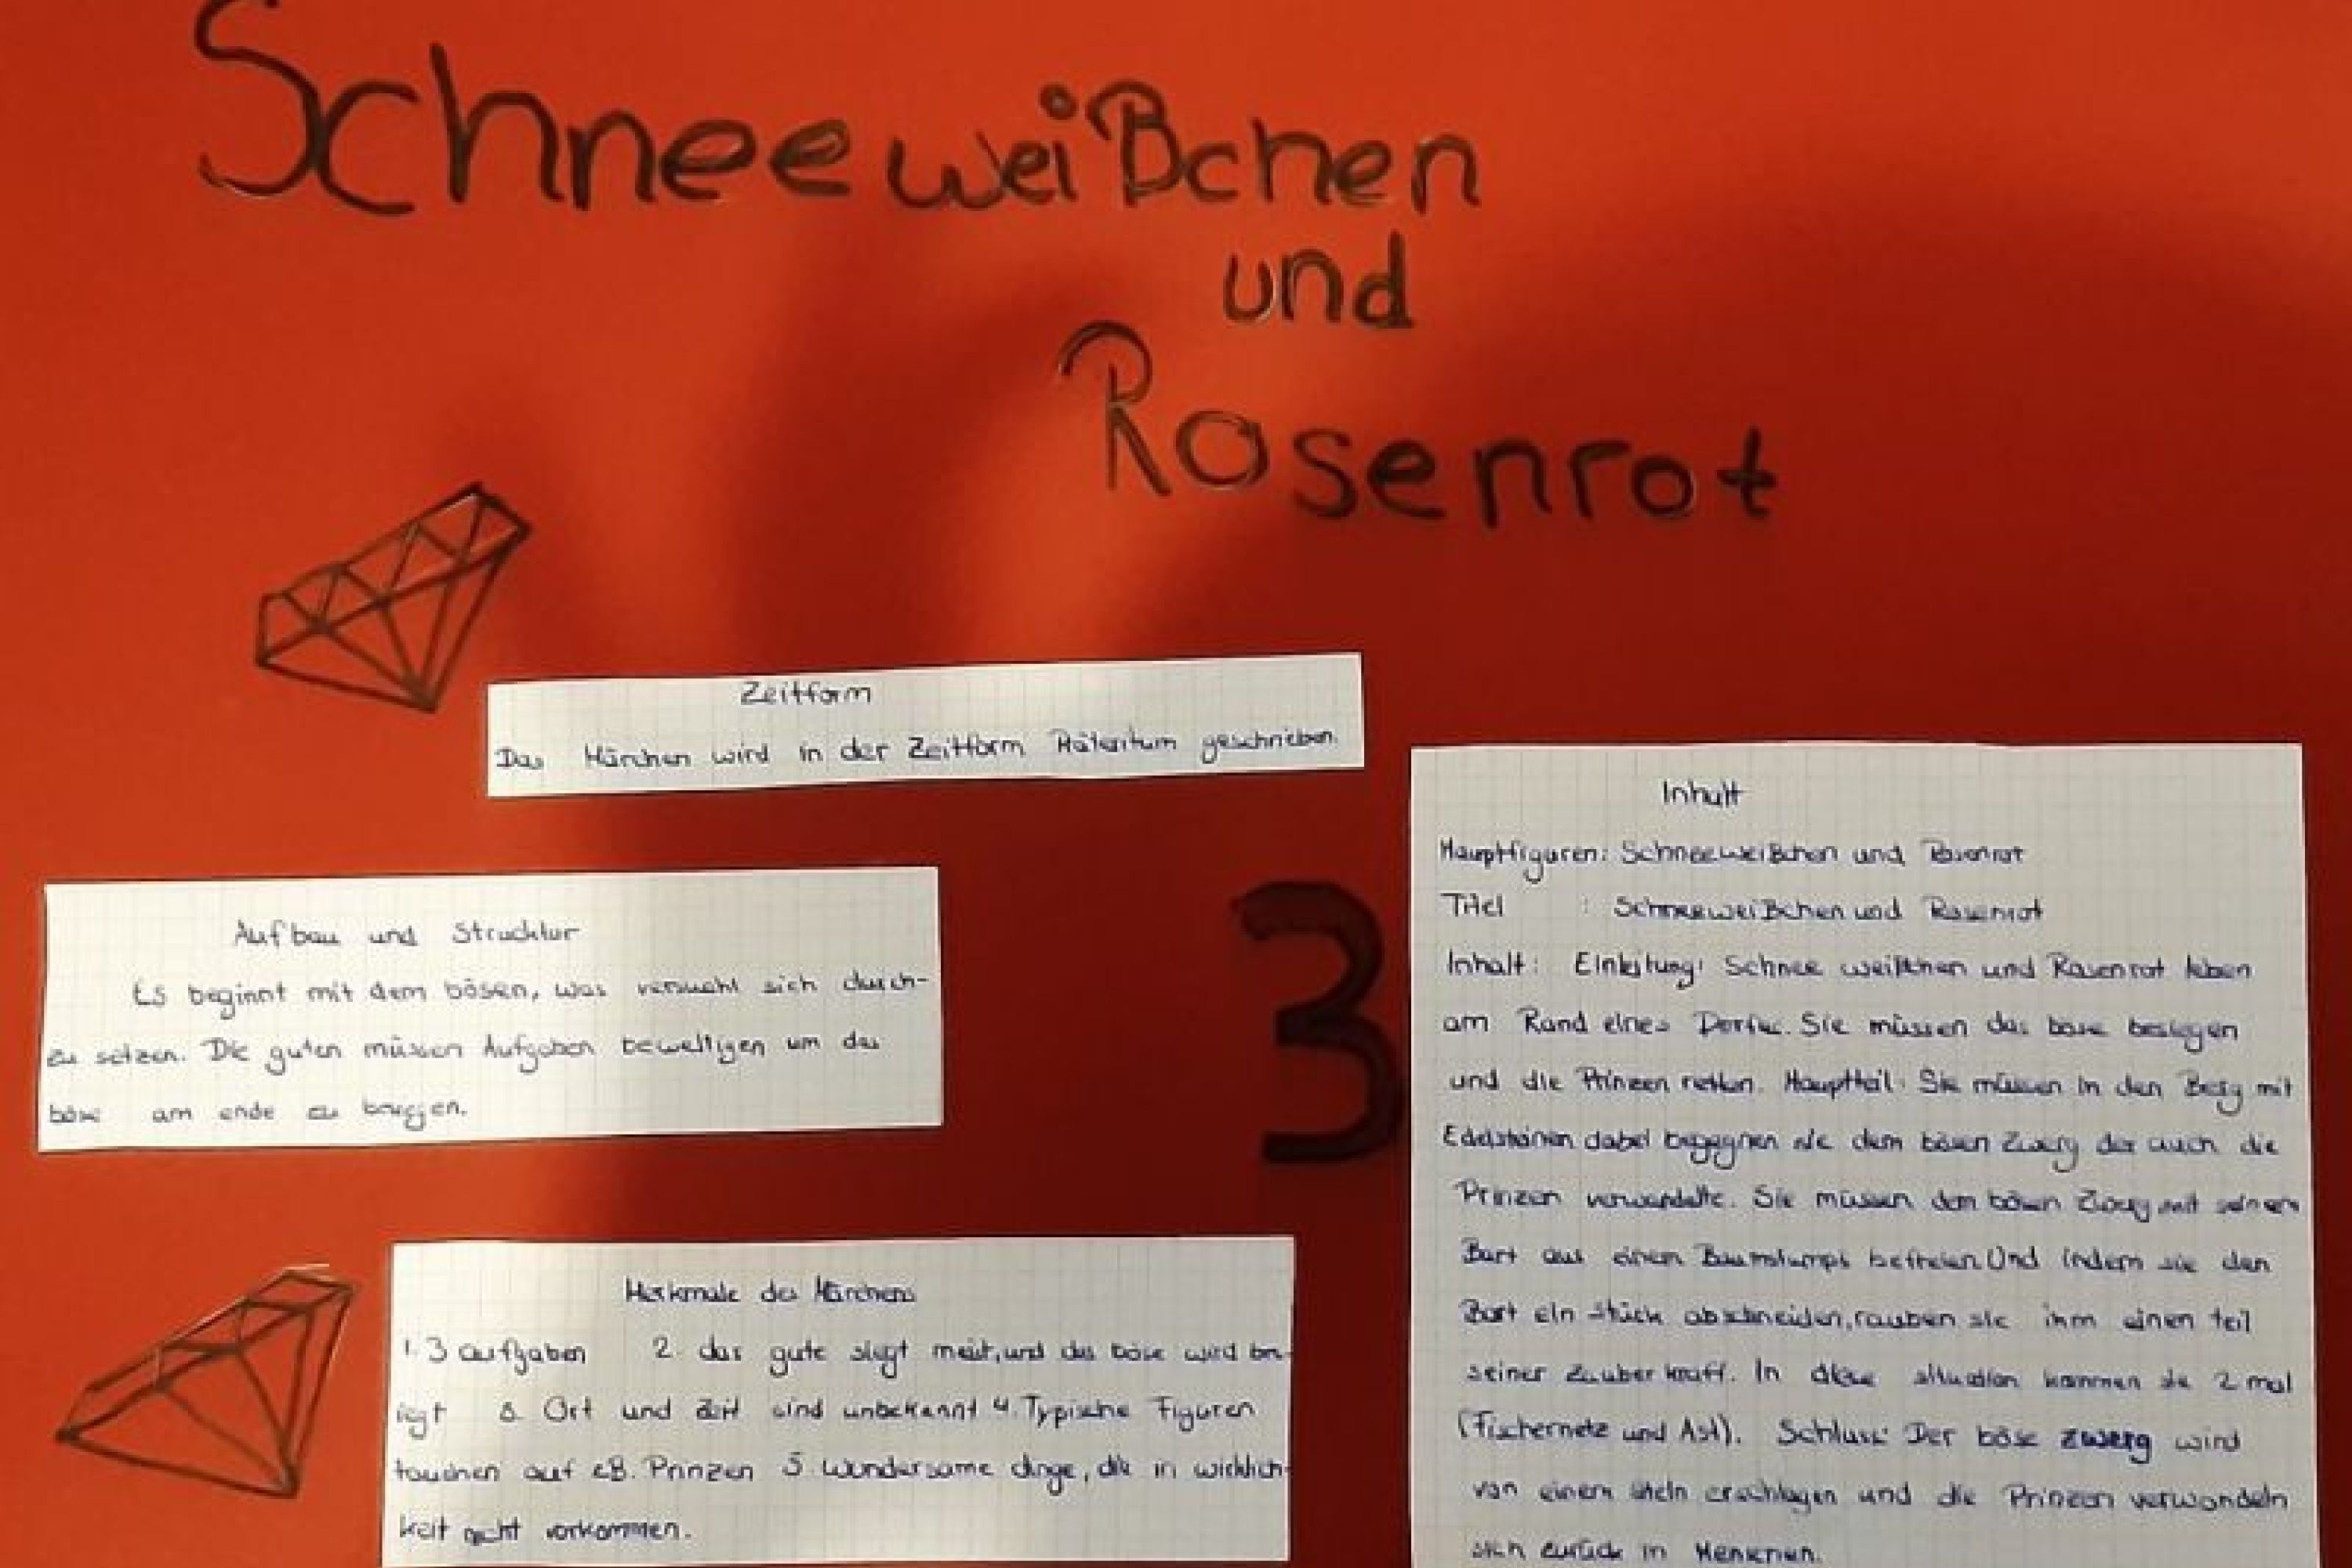 Schneeweißchen
und
Rosenrot
Zeitform
Das Märchen wird in der Zeitform Präteritum geschrieben.
Aufbau und Strucktur
Es beginnt mit dem bösen, was versucht sich durch-
zu setzen. Die guten müssen Aufgaben beweltigen um das
böse am ende zu
3
Merkmale des Märchens
1. 3 aufgaben 2. das gute siegt meist, und das böse wird be-
siegt 3. Ort und Zeit sind unbekannt 4. Typische Figuren
tauchen auf zB. Prinzen 5 Wundersame dinge, die in wicklich-
keit nicht vorkommen.
Inhalt
Hauptfiguren: Schneeweißchen und Rosenrot
Titel : Schneeweißchen und Rosenrot
Inhalt: Einleitung: Schnee weißchen und Rosenrot leben
am Rand eines Dorfes. Sie müssen das böse besiegen
und die Prinzen retten. Hauptteil: Sie müssen in den Berg mit
Edelsteinen dabei begegnen sie dem bösen Zwerg der auch die
Prinzen verwandelte. Sie müssen dem bösen Zwerg mit seinem
Bart aus einem Baumstumpf befreien Und indem sie den
Bart ein stück abschneiden, rauben sie ihm einen teil
seiner Zauber kraft. In diese situation kommen sie 2 mal
(Fischernetz und Ast). Schluss: Der böse zwerg wird
von einem stein erschlagen und die Prinzen verwandeln
sich zurück in Menschen.